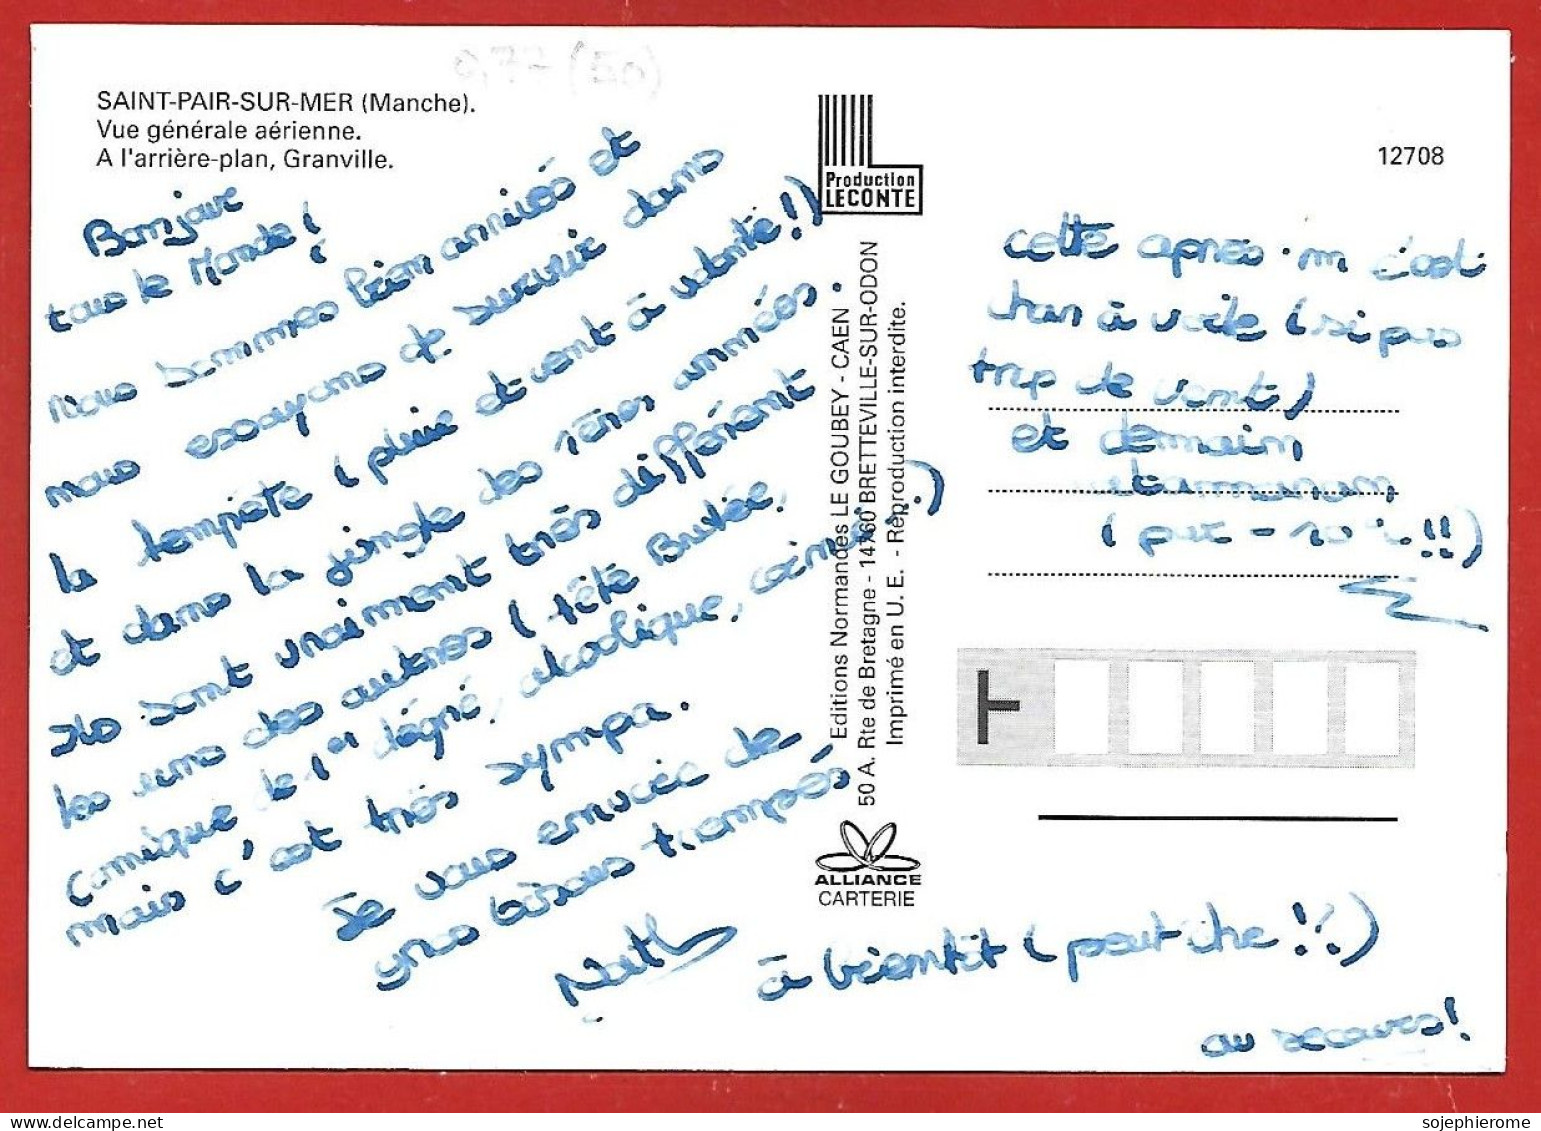 0,77 (50)
SAINT-PAIR-SUR-MER (Manche).
Vue générale aérienne.
A l'arrière-plan, Granville.
12708
Production
LECONTE
Bonjour
tous le Monde !
Nous sommes bien arrivés et
nous essayons de survivre dans
la tempête (pluie et vent à volonté !)
et dans la jungle des 1ères années.
Ils sont vraiment très différent
les uns des autres (tête Brulée,
comique de 1er dégré, alcolique, ...)
mais c'est très sympa.
Je vous envoie de
gros bisous trempés
Nath
à bientôt (peut être !!)
au secours !
cette après-m c'est
char à voile (si pas
trop de vent)
et demain
catamaran
(par -10° !!)
Editions Normandes LE GOUBEY - CAEN
50 A. Rte de Bretagne - 14760 BRETTEVILLE-SUR-ODON
Imprimé en U. E. - Reproduction interdite.
ALLIANCE
CARTERIE
sojephierome